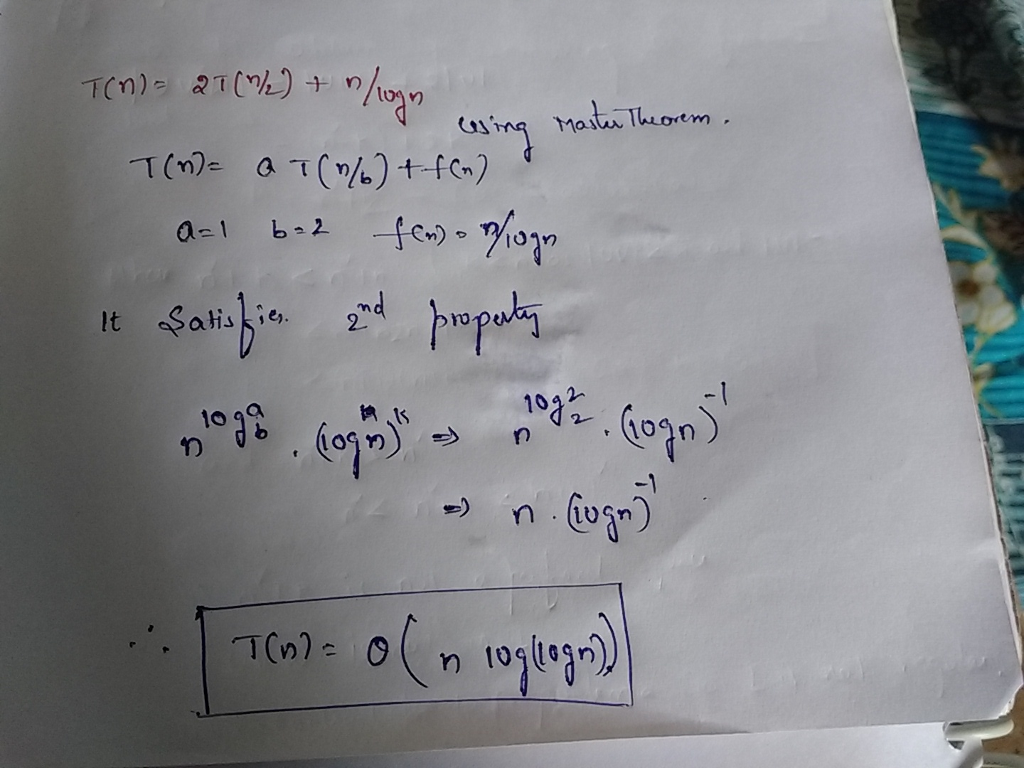 T(n) = 2T(n/2) + n/logn
using Master Theorem.
T(n) = a T(n/b) + f(n)
a=1 b=2 f(n) = n/logn
It Satisfies. 2nd property
n^log_b^a . (logn)^k ⇒ n^log_2^2 . (logn)^-1
⇒ n . (logn)^-1
∴ T(n) = θ( n log(logn))